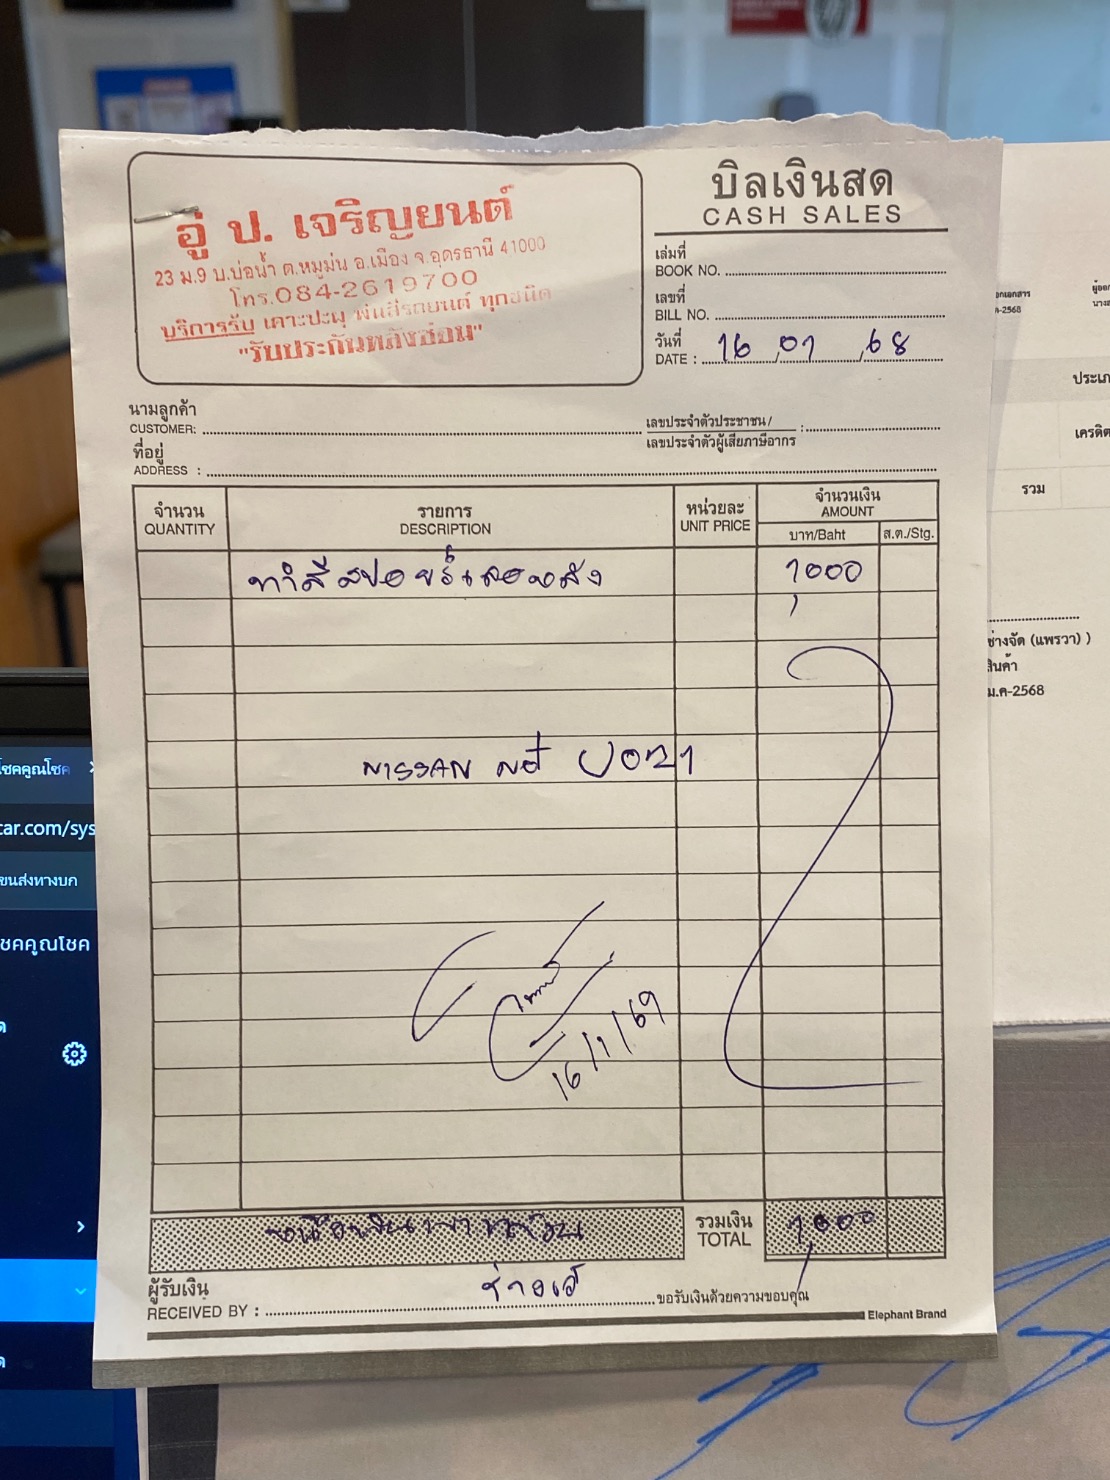 อู่ ป. เจริญยนต์
23 ม.9 บ.บ่อน้ำ ต.หมูม่น อ.เมือง จ.อุดรธานี 41000
โทร.084-2619700
บริการรับ เคาะปะผุ พ่นสีรถยนต์ ทุกชนิด
"รับประกันหลังซ่อม"
บิลเงินสด
CASH SALES
เล่มที่
BOOK NO.
เลขที่
BILL NO.
วันที่
DATE : 16 01 68
นามลูกค้า
CUSTOMER:
เลขประจำตัวประชาชน/
เลขประจำตัวผู้เสียภาษีอากร :
ที่อยู่
ADDRESS :
จำนวน
QUANTITY
รายการ
DESCRIPTION
หน่วยละ
UNIT PRICE
จำนวนเงิน
AMOUNT
บาท/Baht
ส.ต./Stg.
ทำสี 1,000
NISSAN
16/1/69
รวมเงิน
TOTAL
1,000
ผู้รับเงิน
RECEIVED BY :
ขอรับเงินด้วยความขอบคุณ
Elephant Brand
ประเภ
เครดิต
รวม
ช่างจัด (แพรวา) )
สินค้า
ม.ค-2568
ค-2568
โชคคูณโชค
car.com/sys
ขนส่งทางบก
ชคคูณโชค